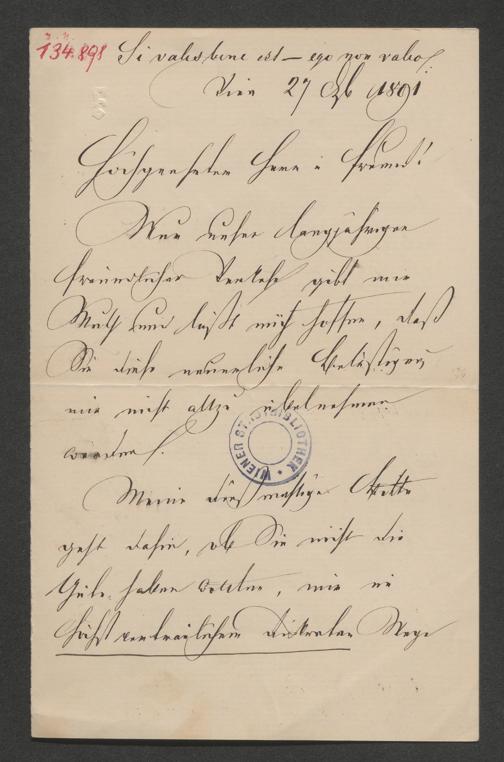 J. N.
134.898
Si vales bene est – ego non valeo!
Wien 27 Ob 1891
Hochgeehrter Herr u Freund!
Nur unser langjähriger
freundlicher Verkehr gibt mir
Muth und läßt mich hoffen, daß
Sie diese neuerliche Belästigung
mir nicht allzu übelnehmen
werden.
WIENER STADTBIBLIOTHEK
Meine dießmalige Bitte
geht dahin, ob Sie nicht die
Güte haben wollten, mir im
höchst vertraulichem diskreten Wege